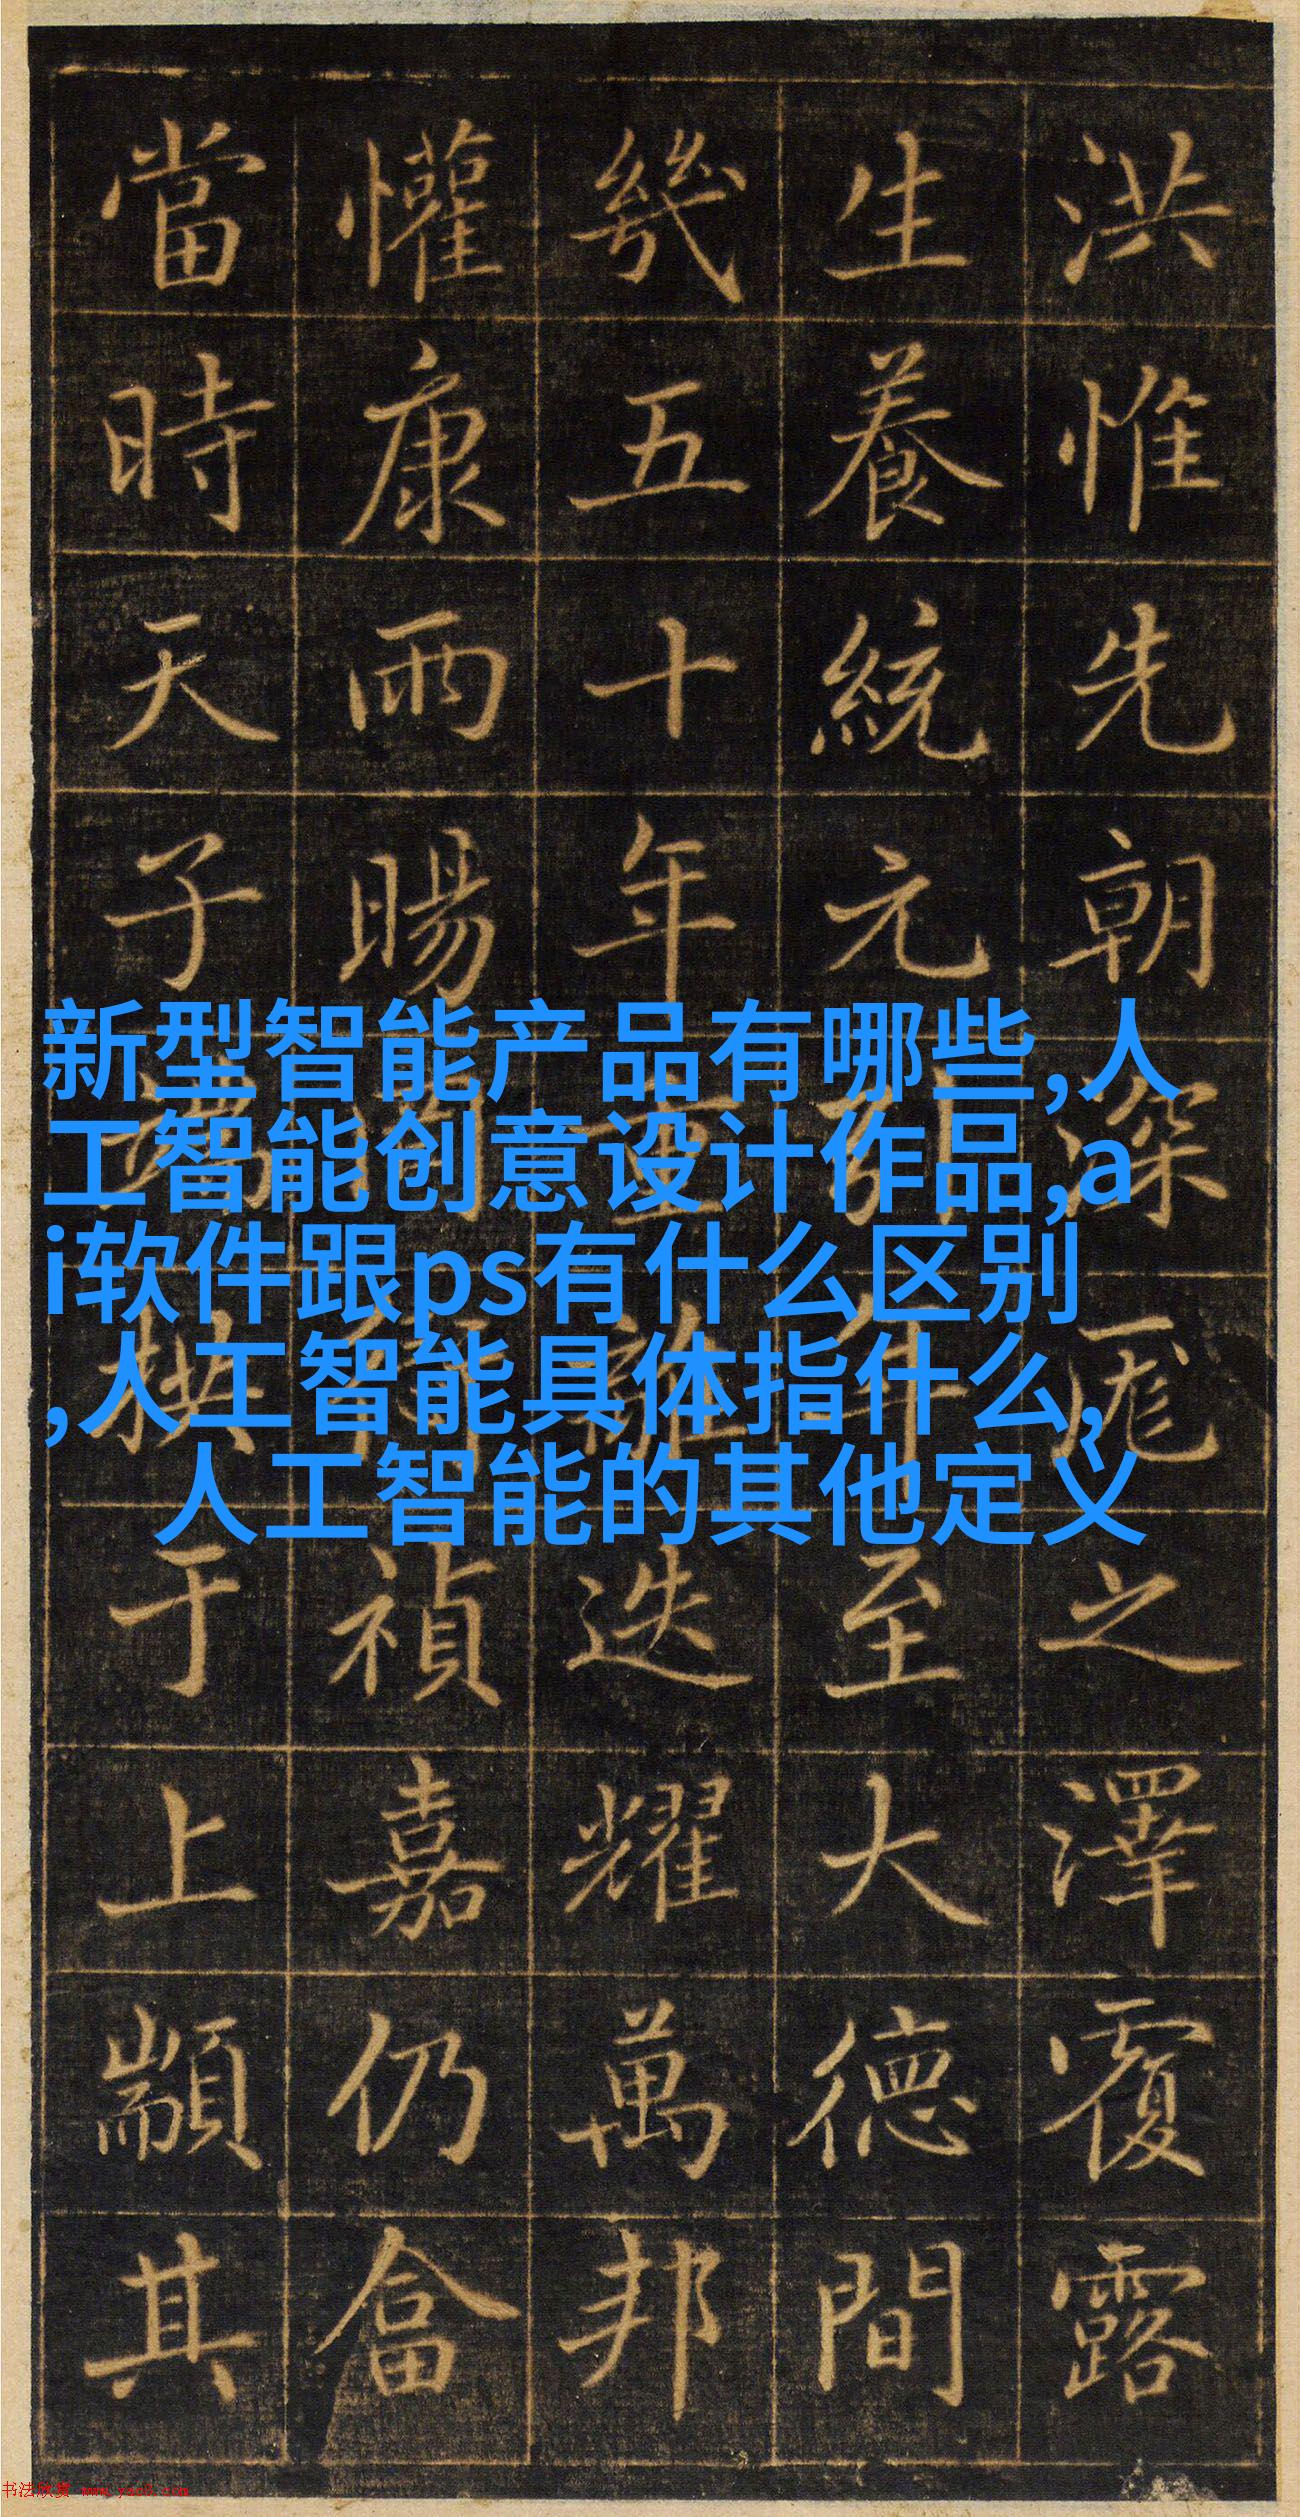 洪惟先朝深厖之澤覆露
生養統元引至大德間
幾五十年重離迭耀萬邦
懽康雨暘禎嘉仍畣
當時天子端拱于上顒其
新型智能产品有哪些,人
工智能创意设计作品,a
i软件跟ps有什么区别
,人工智能具体指什么,
人工智能的其他定义
书法欣赏 www.yac8.com